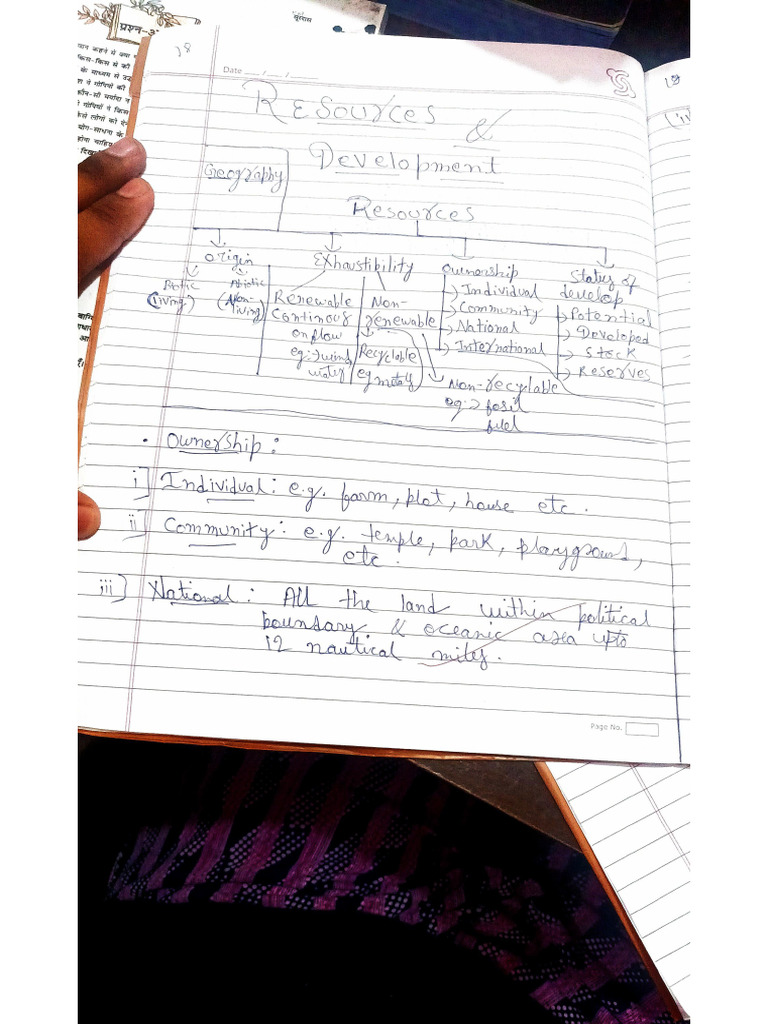 सूरदास
प्रश्न-अ
18
Date __/__/____
RESOURCES
&
Geography
Development
Resources
Origin
Exhaustibility
Ownership
Status of
develop
Biotic
(living)
Abiotic
(Non-
living)
Renewable
Continous
on flow
eg:→ wind
water
Non-
renewable
Recyclable
eg metals
Non-recyclable
eg:→ fosil
fuel
→ Individual
→ Community
→ National
→ International
→ Potential
→ Developed
→ Stock
→ Reserves
• Ownership :
i] Individual : e.g. farm, plot, house etc.
ii] Community : e.g. temple, park, playground,
etc.
iii] National : All the land within political
boundary & oceanic area upto
12 nautical miles.
Page No.